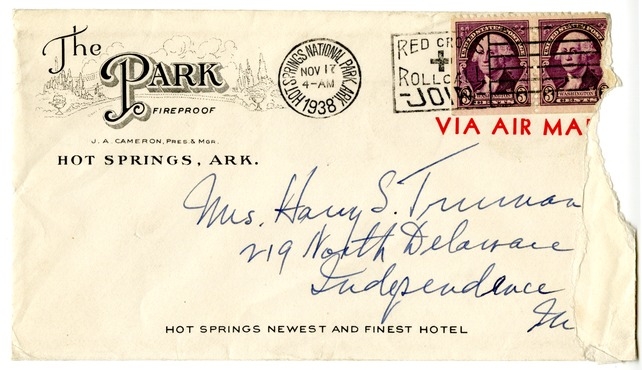 The
PARK
FIREPROOF
J. A. CAMERON, PRES. & MGR.
HOT SPRINGS, ARK.
HOT SPRINGS NATIONAL PARK, ARK.
NOV 17
4-AM
1938
RED CROSS
ROLLCA
JOIN
UNITED STATES POSTAGE
WASHINGTON
3 CENTS 3
VIA AIR MA
Mrs. Harry S. Truman
219 North Delaware
Independence
HOT SPRINGS NEWEST AND FINEST HOTEL